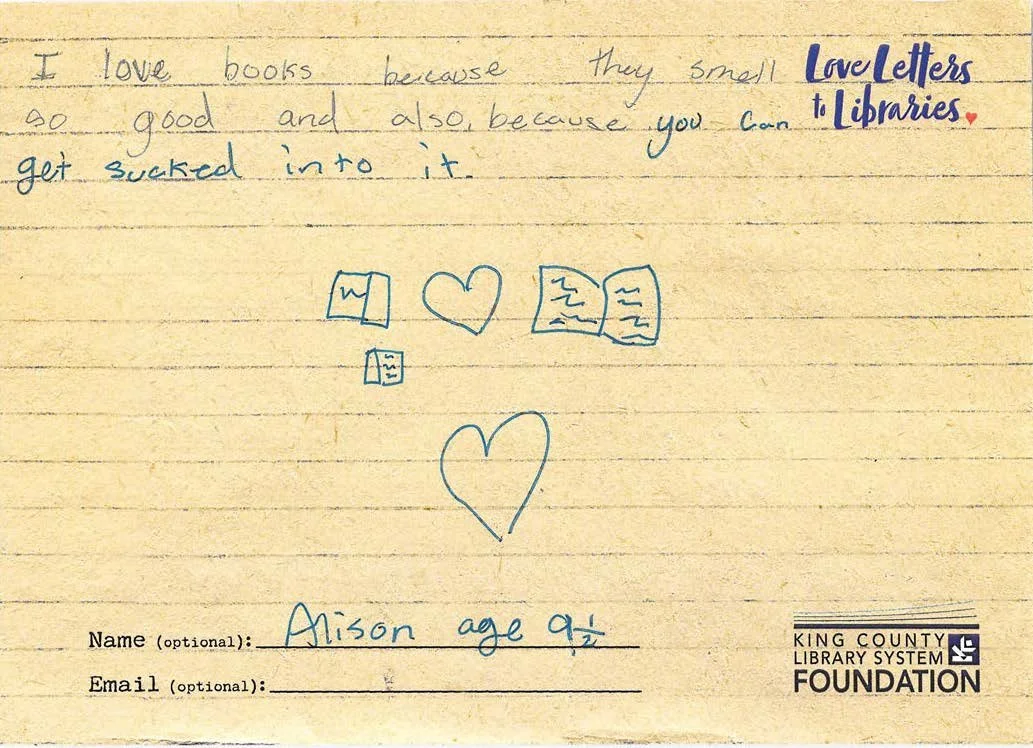 I love books because they smell
so good and also, because you can
get sucked into it.
Love Letters
to Libraries
Name (optional): Alison age 9 1/2
Email (optional):
KING COUNTY
LIBRARY SYSTEM
FOUNDATION